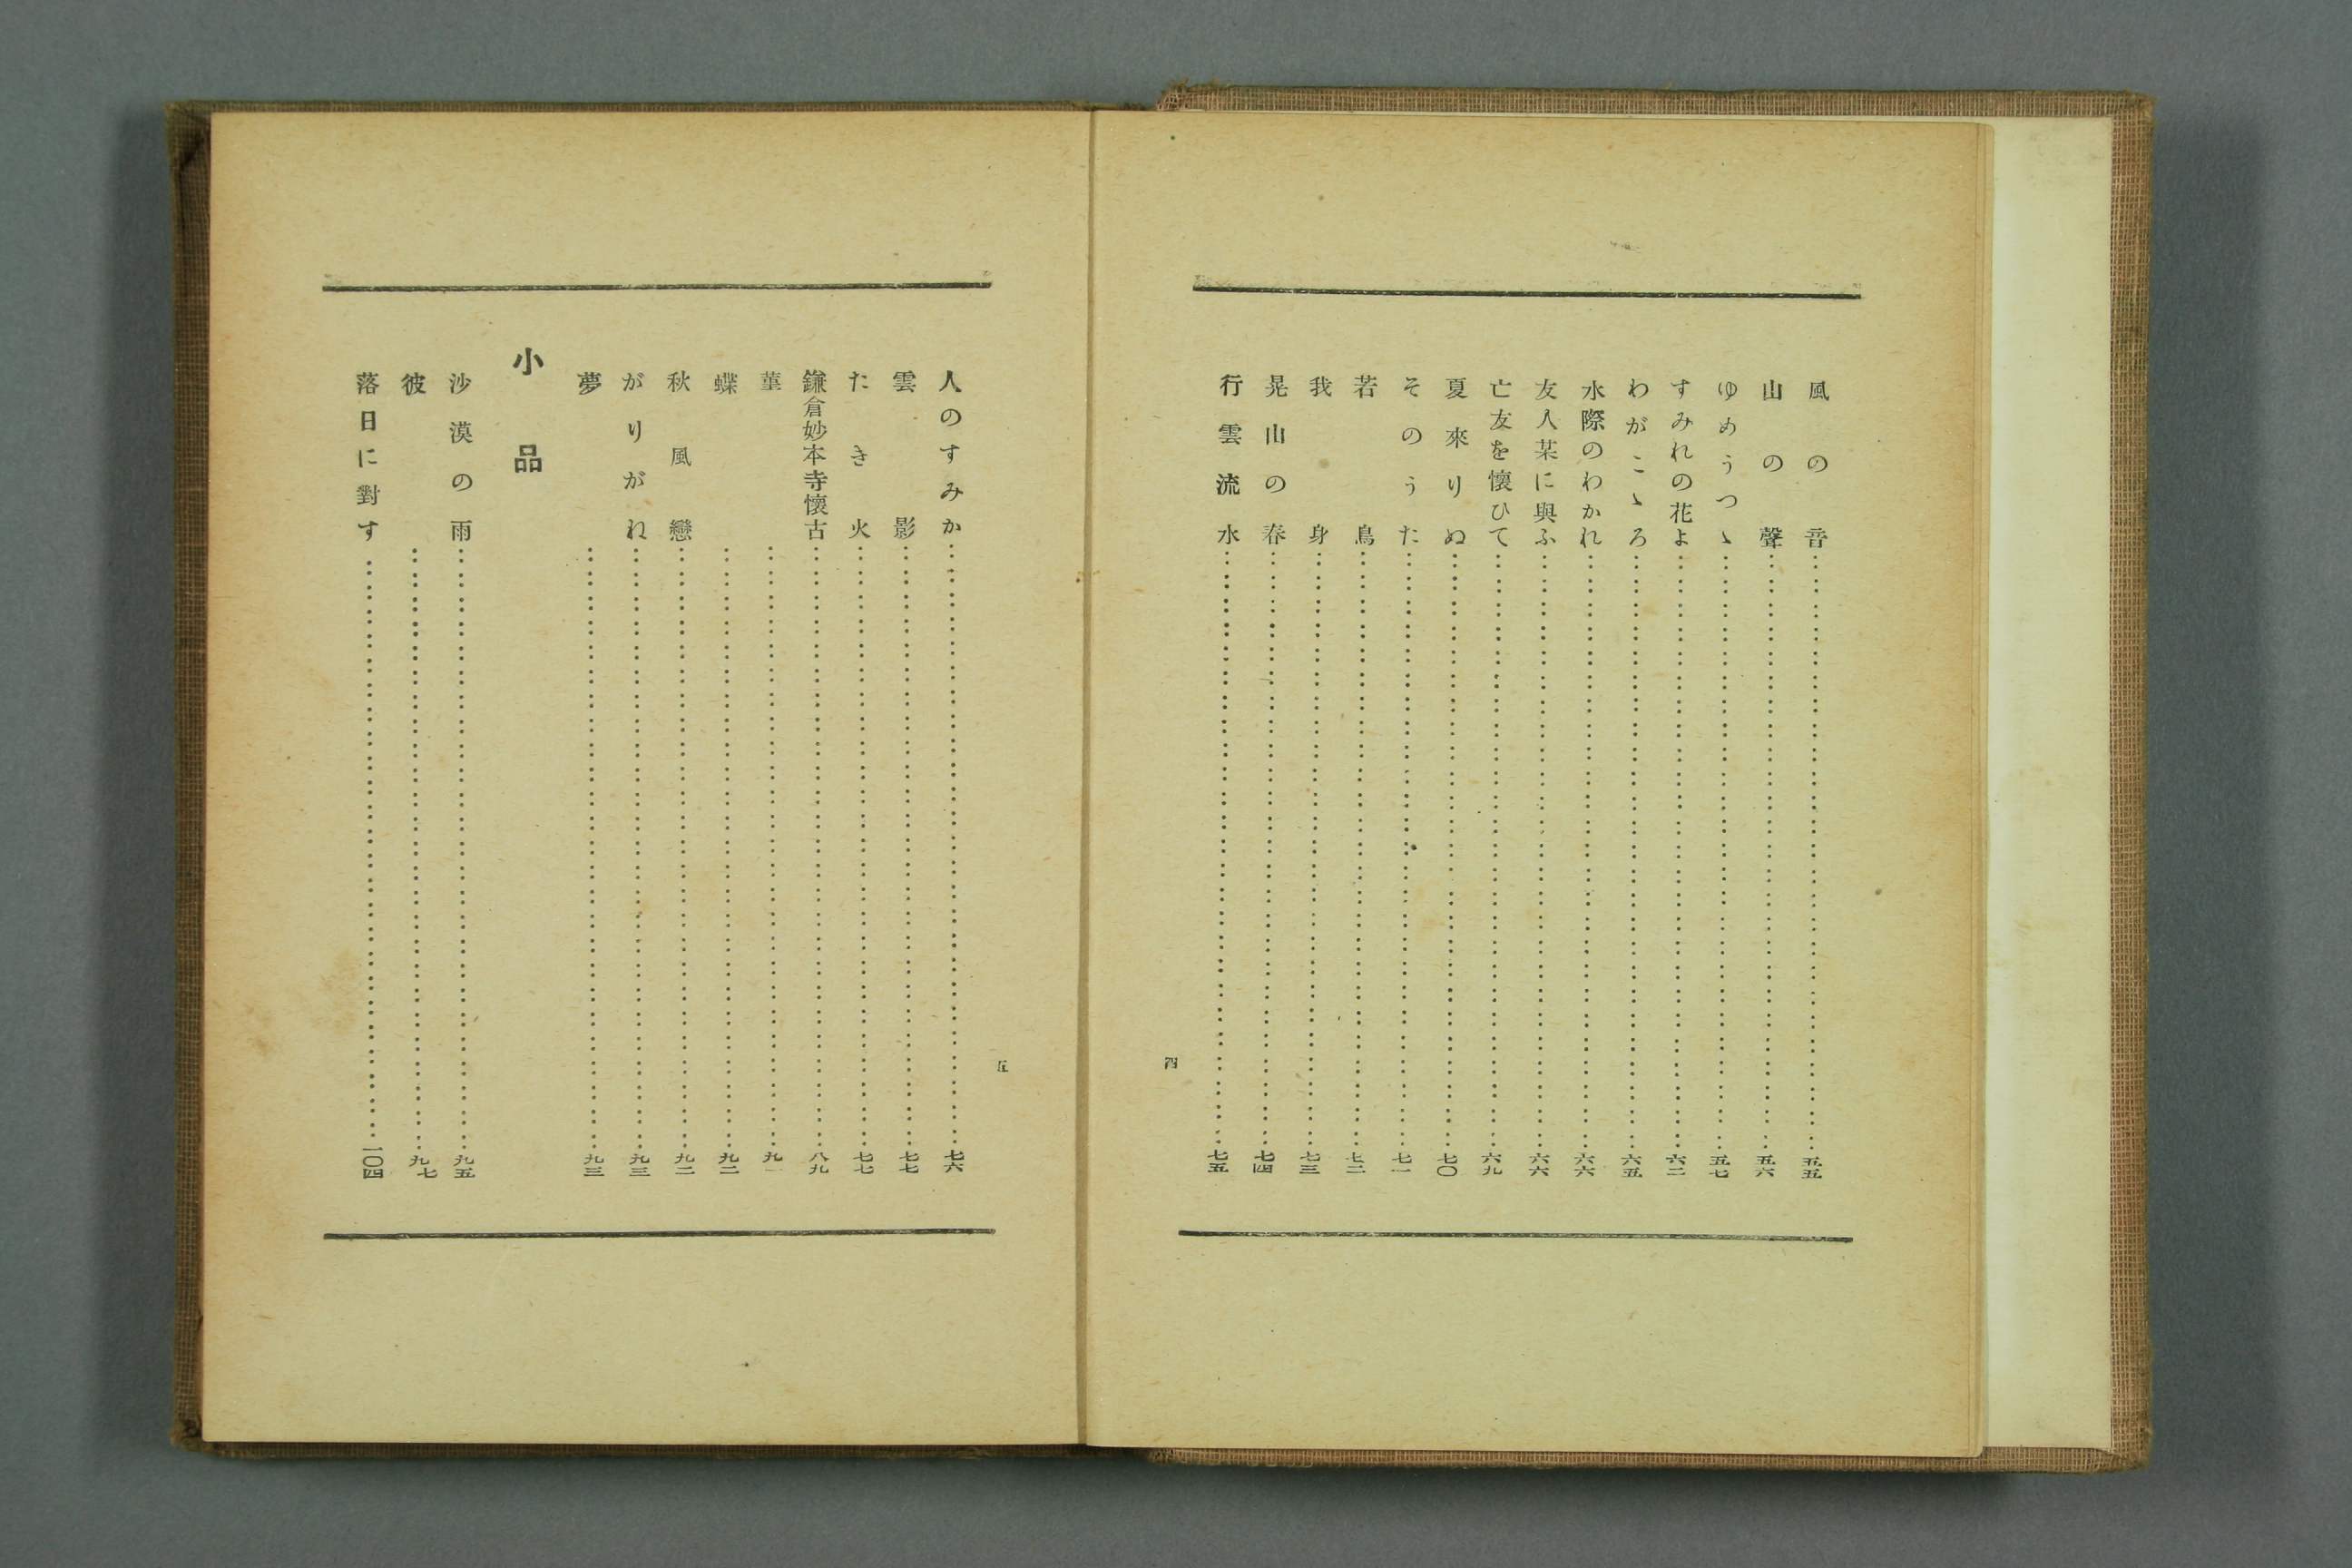 風の音……五五
山の聲……五六
ゆめうつゝ……五七
すみれの花よ……六二
わがこゝろ……六五
水際のわかれ……六六
友人某に與ふ……六六
亡友を懷ひて……六九
夏來りぬ……七〇
そのうた……七一
若鳥……七二
我身……七三
晃山の春……七四
行雲流水……七五
四
人のすみか……七六
雲影……七七
たき火……七七
鎌倉妙本寺懷古……八九
菫……九一
蝶……九二
秋風戀……九二
がりがね……九三
夢……九三
小品
沙漠の雨……九五
彼……九七
落日に對す……一〇四
五